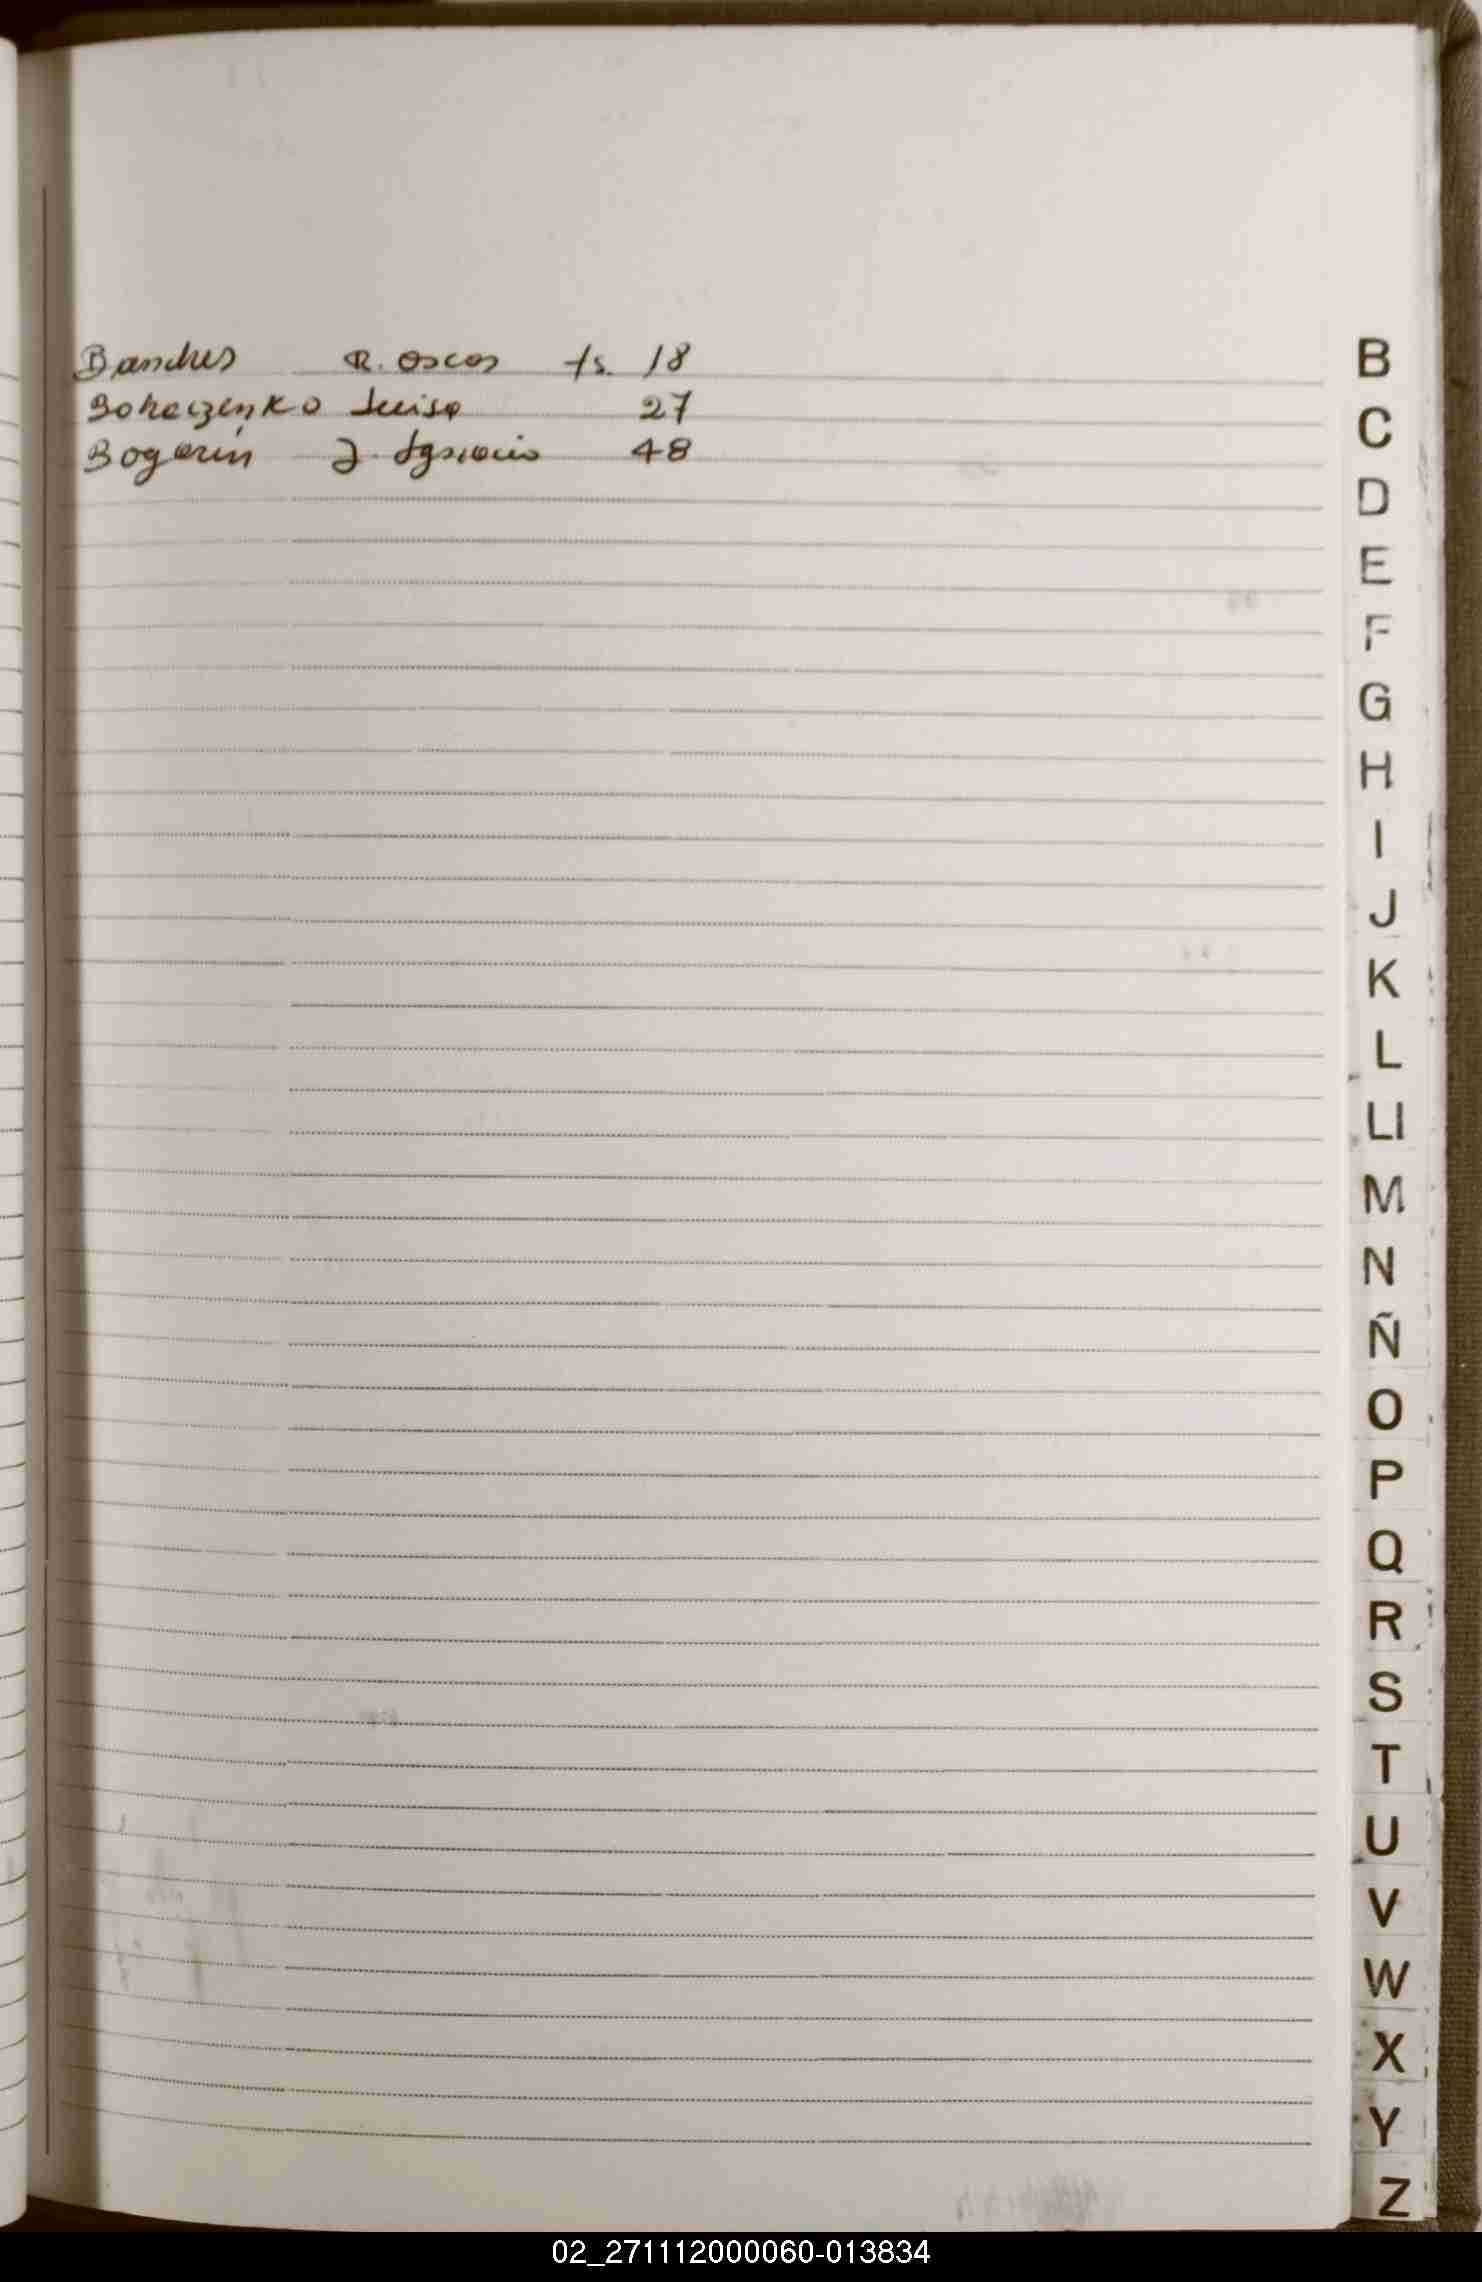 R. Oscar fs. 18
Luisa 27
Bogarin J. Ignacio 48
B
C
D
E
F
G
H
I
J
K
L
Ll
M
N
Ñ
O
P
Q
R
S
T
U
V
W
X
Y
Z
02_271112000060-013834